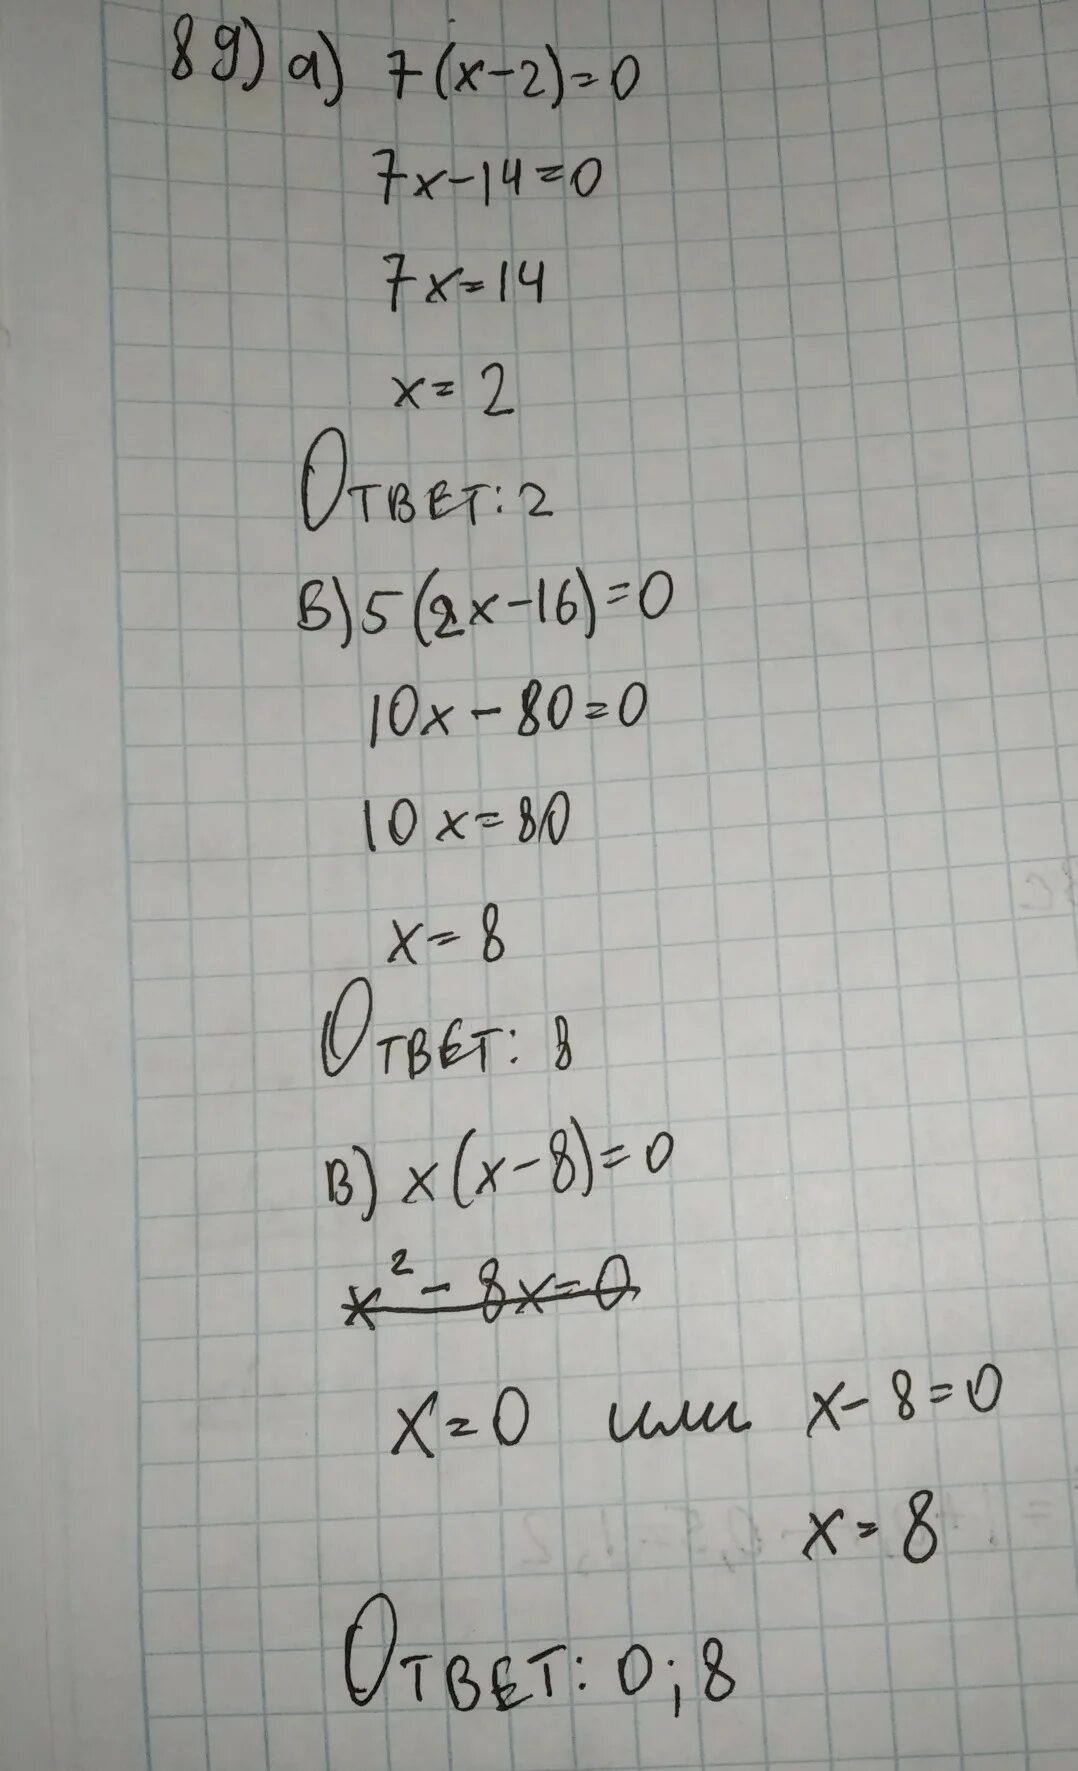 89) а) 7(x-2)=0
7x-14=0
7x=14
x=2
Ответ: 2
В) 5(2x-16)=0
10x-80=0
10x=80
x=8
Ответ: 8
В) x(x-8)=0
x²-8x=0
x=0 или x-8=0
x=8
Ответ: 0;8